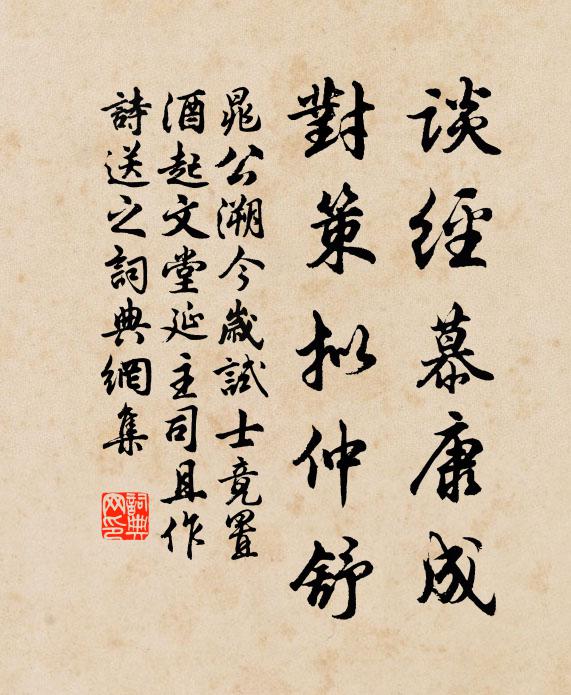 谈經慕康成
對策拟仲舒
晁公溯今歲試士竟置
酒起文堂延主司且作
詩送之詞典網集
詞典
网印